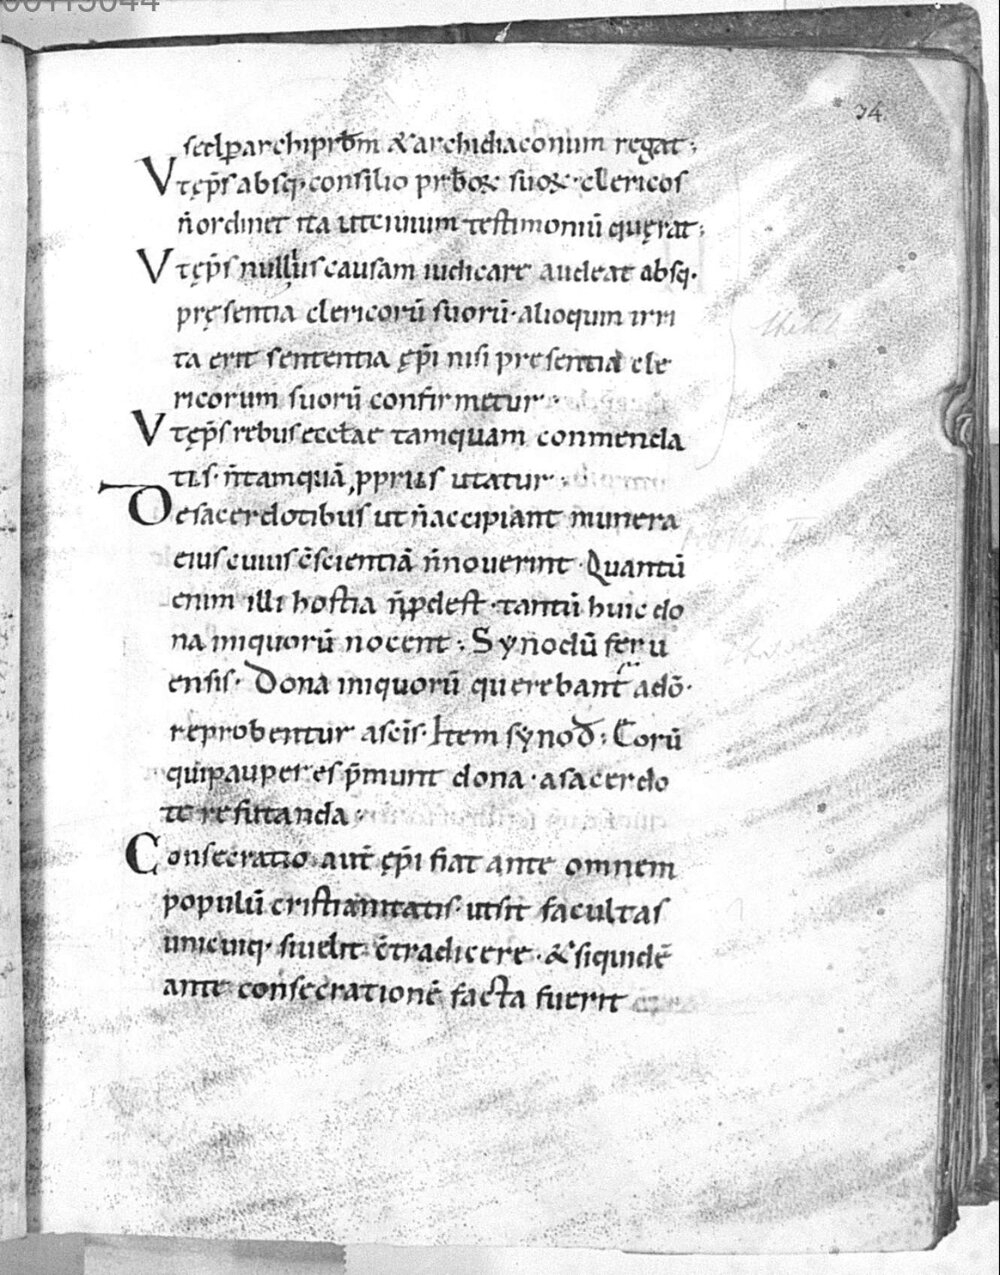 00113044
74
sed p archipr̄bm &archidiaconum regat;
Vt ęp̄s absq; consilio pr̄boꝝ suoꝝ· clericos
n̄ ordinet ita ut ciuium testimoniū quęrat;
Vt ęp̄s nullius causam iudicare audeat absq;
pręsentia clericorū suorū· alioquin irri
ta erit sententia ęp̄i nisi presentia cle
ricorum suorū confirmetur·
Vt ęp̄s rebus ęccłae tamquam commenda
tis· n̄ tamquā ꝓpriis utatur;
De sacerdotibus ut n̄ accipiant munera
eius cuius c̄scientiā n̄ nouerint· Quantū
enim illi hostia n̄ ꝓdest· tantū huic do
na iniquorū nocent; Synodū
ensis· Dona iniquorū querebant̄ a dō·
reprobentur a sc̄is· Item synod̄; Eorū
qui pauperes p̄munt dona· a sacerdo
te refutanda·
Consecratio aut̄ ęp̄i fiat ante omnem
populū cristianitatis· ut sit facultas
unicuiq; si uelit c̄tradicere· & siquidē
ante consecrationē facta fuerit